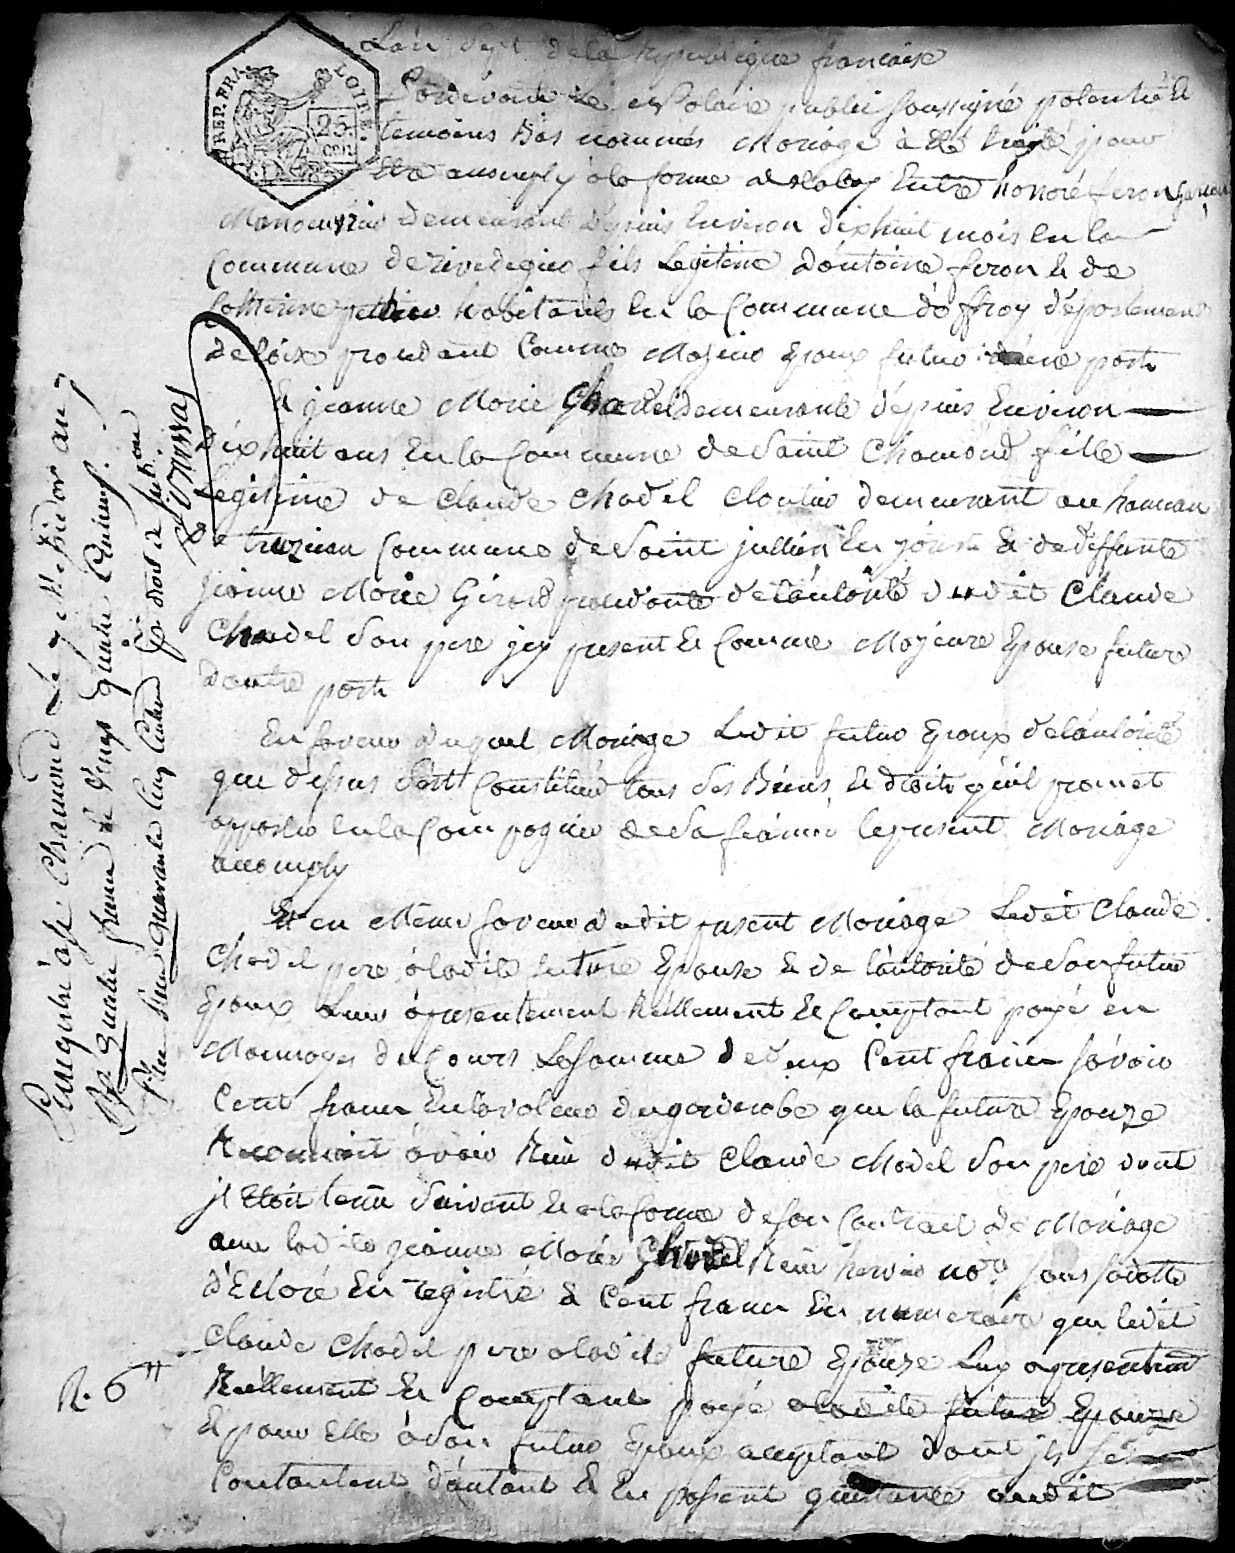 L'an sept de la republique francaise
Pardevant le notaire public soussigné patenté &
temoins bas nommés Mariage à eté traité pour
etre accomply à la forme de la loy Entre honoré feron garçon
Manoeuvrier demeurant depuis Environ dixhuit mois en la
Commune de rivedegier fils Legitime d'antoine feron & de
Catherine habitants en la Commune d'offroy département
de loise procedant Comme Majeur Epoux futur d'une part
& jeanne Marie Chadel demeurante dépuis Environ
dixhuit ans en la Commune de Saint Chamond fille
Legitime de Claude Chadel Cloutier demeurant au hameau
de Commune de Saint jullien en jarest & de deffunte
jeanne Marie Girard procedante de l'autorité dudit Claude
Chadel son pere icy present & Comme Majeure Epouse future
d'autre part
En faveur duquel Mariage Ledit futur Epoux de l'autorité
que dessus s'est Constitué tous ses Biens & droits qu'il promet
apporter en la Compagnie de sa femme le present Mariage
accomply
Et en Meme faveur dudit present Mariage Ledit Claude
Chadel pere à ladite future Epouse & de l'autorité de son futur
Epoux Luy à presentement Réellement & Comptant payé en
Monnoyes du Cours La somme de deux Cent francs sávoir
Cent francs En la valeur du garderobe que la future Epouze
Reconnoit ávoir Reçu dudit Claude Chadel son pere dont
jl Etoit tenu suivant & a la forme de son Contrat de Mariage
avec ladite jeanne Marie Reçu nore sous sa datte
d'Eclaré En registré & Cent francs En numeraire que ledit
Claude Chadel pere a ladite future Epouze Luy a presentement
Réellement & Comptant payé a ladite future Epouze
& pour Elle à son futur Epoux acceptant dont jls se
Contantent d'autant & En passent quittance audit
Enregistré à St Chamond Le 7 Messidor an 7
Reçu quatre francs & vingt quatre Centimes
Plus pour quarante cinq Centimes pr droit de subon
R. 6"
REP. FRA.
LOIRE
25
CEN